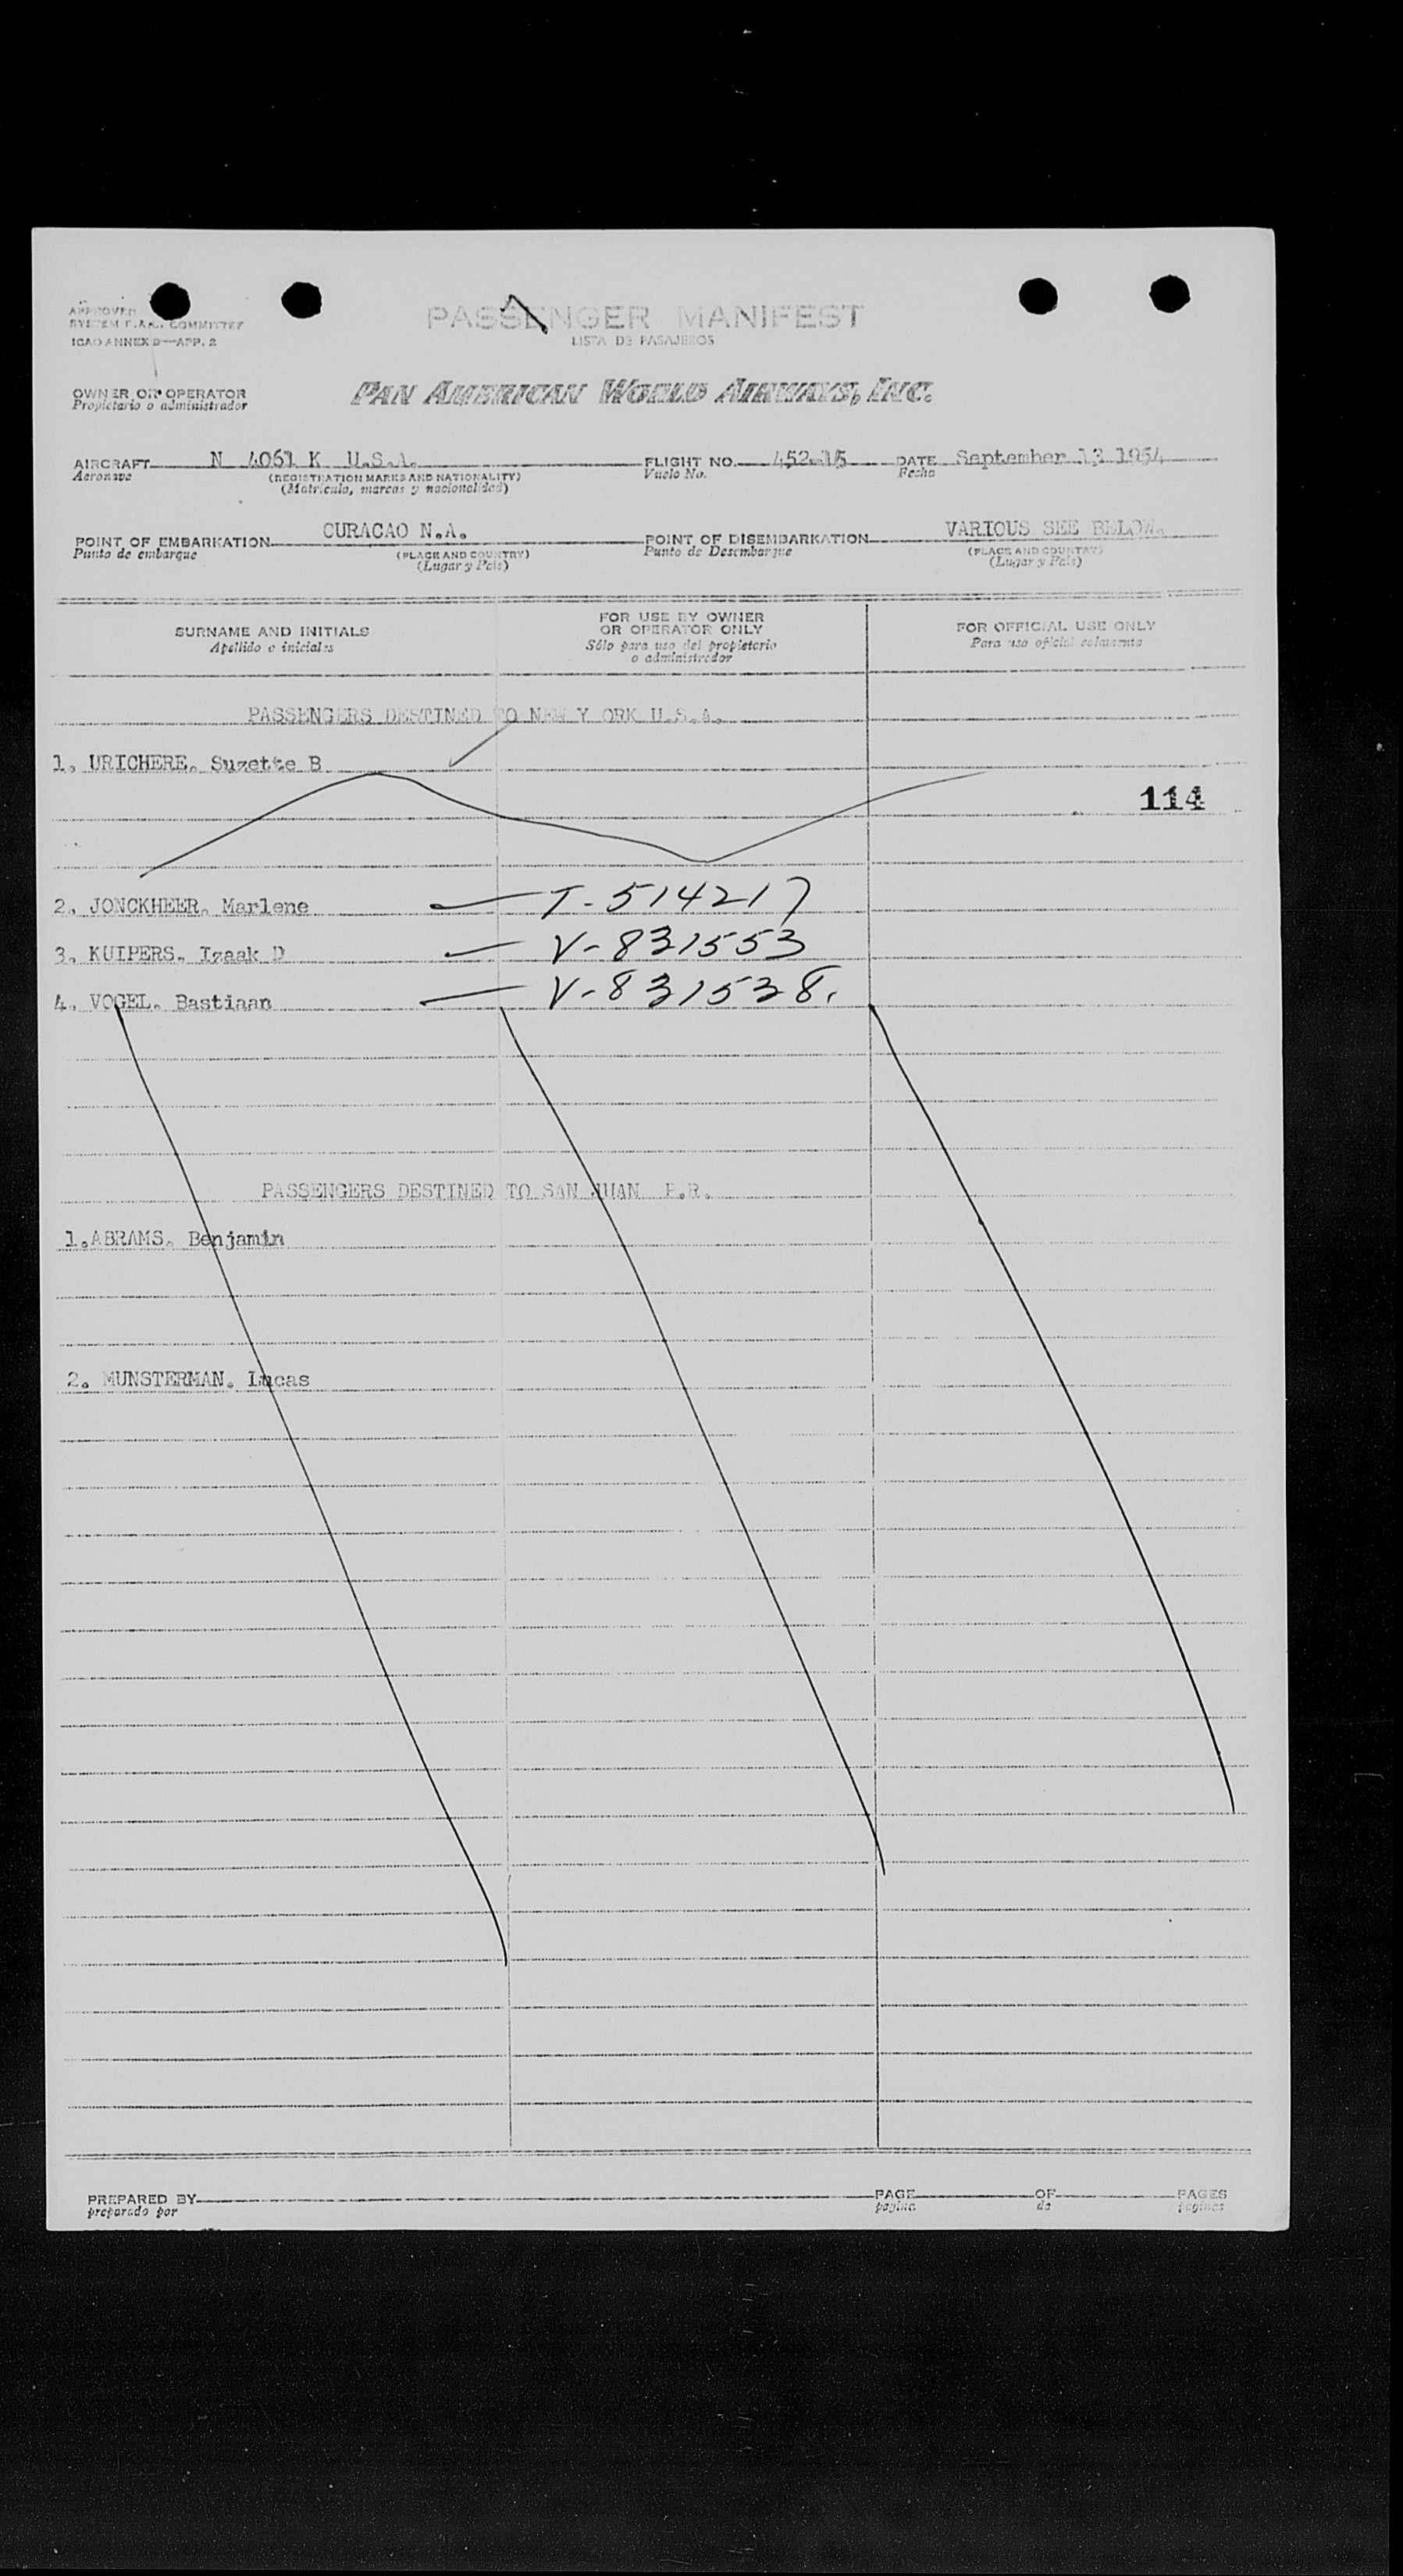 APPROVED
SYSTEM F.A.L. COMMITTEE
ICAO ANNEX 9—APP. 2
PASSENGER MANIFEST
LISTA DE PASAJEROS
OWNER OR OPERATOR
Propietario o administrador
PAN AMERICAN WORLD AIRWAYS, INC.
AIRCRAFT N 4061 K U.S.A. FLIGHT NO. 452-15 DATE September 13 1954
Aeronave (REGISTRATION MARKS AND NATIONALITY) Vuelo No. Fecha
(Matrícula, marcas y nacionalidad)
POINT OF EMBARKATION CURACAO N.A. POINT OF DISEMBARKATION VARIOUS SEE BELOW.
Punto de embarque (PLACE AND COUNTRY) Punto de Desembarque (PLACE AND COUNTRY)
(Lugar y País) (Lugar y País)
SURNAME AND INITIALS
Apellido e iniciales
FOR USE BY OWNER
OR OPERATOR ONLY
Sólo para uso del propietario
o administrador
FOR OFFICIAL USE ONLY
Para uso oficial solamente
PASSENGERS DESTINED TO NEW Y ORK U.S.A.
1. URICHERE. Suzette B
114
2. JONCKHEER. Marlene T-514217
3. KUIPERS. Izaak D V-831553
4. VOGEL. Bastiaan V-831538.
PASSENGERS DESTINED TO SAN JUAN P.R.
1.ABRAMS. Benjamin
2. MUNSTERMAN. Lucas
PREPARED BY PAGE OF PAGES
preparado por pagina de paginas